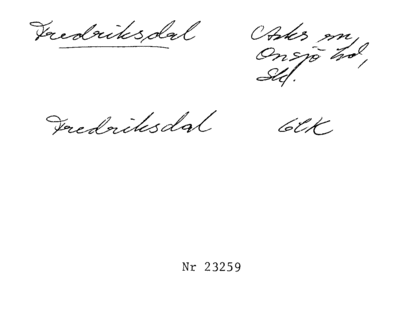 Fredriksdal Asks sn,
Onsjö hd,
Skd.
Fredriksdal GEK
Nr 23259